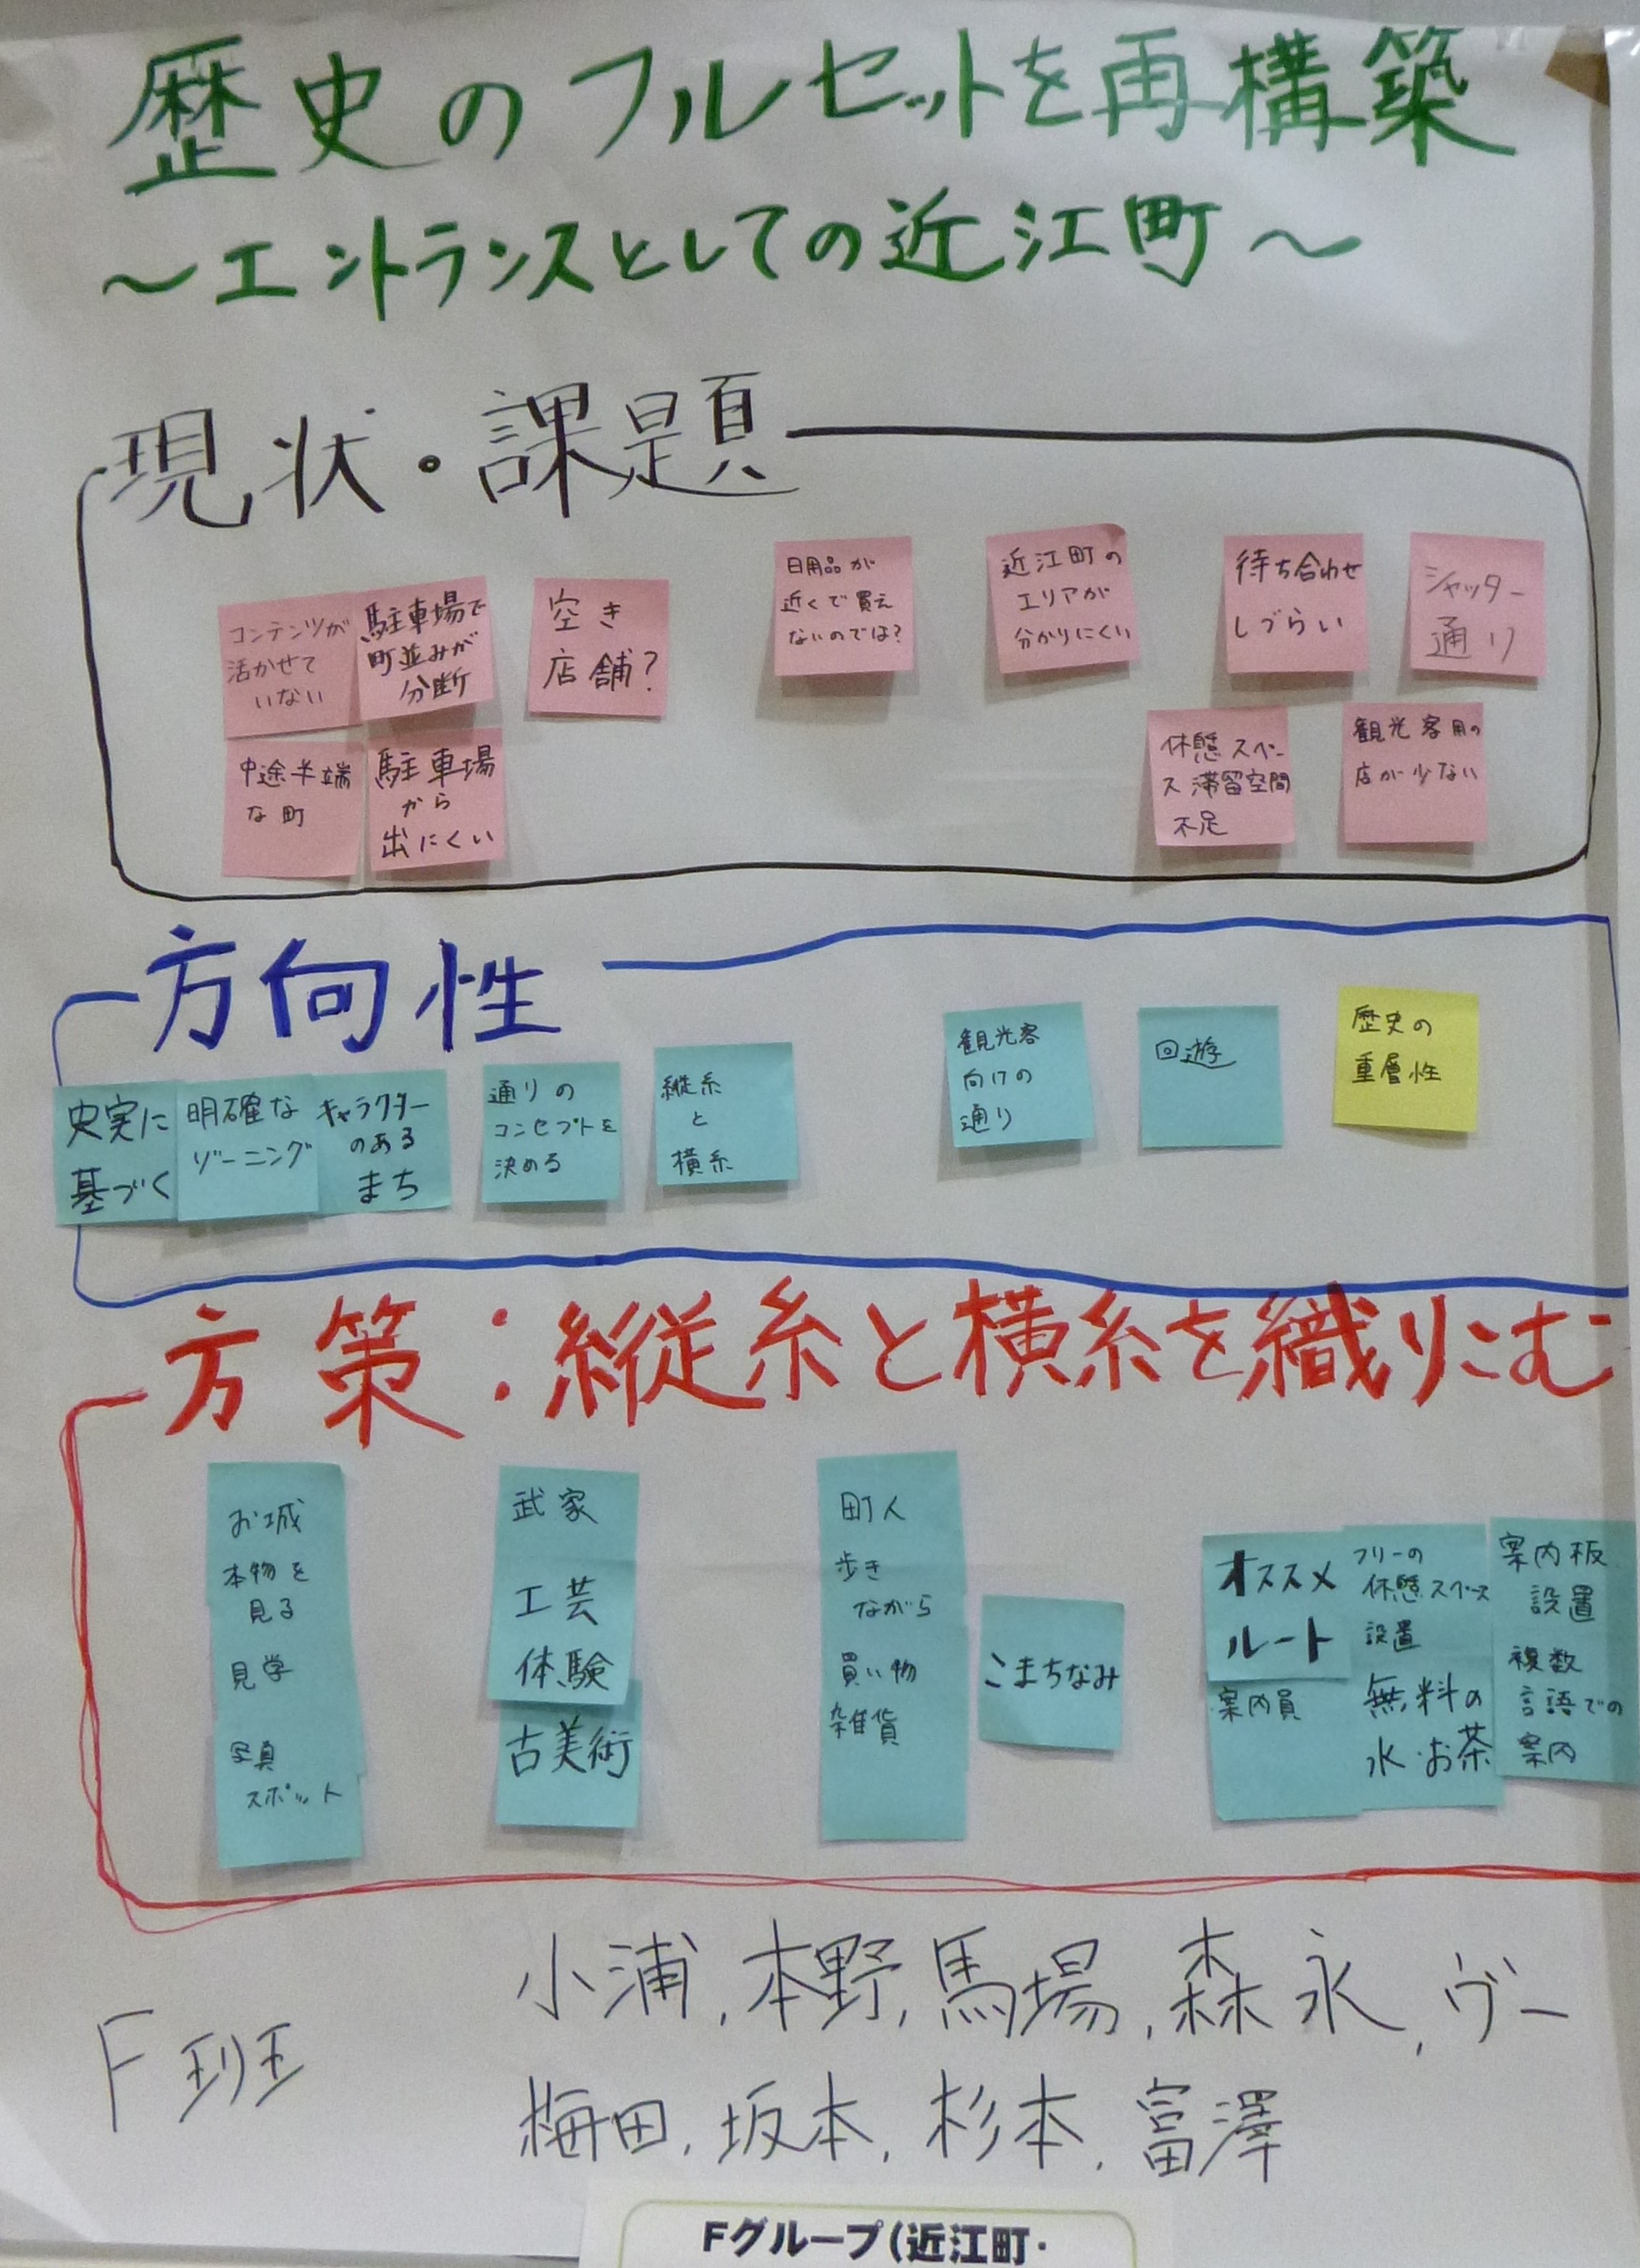 歴史のフルセットを再構築
～エントランスとしての近江町～
現状・課題
コンテンツが
活かせて
いない
駐車場で
町並みが
分断
空き
店舗?
日用品が
近くで買え
ないのでは?
近江町の
エリアが
分かりにくい
待ち合わせ
しづらい
シャッター
通り
中途半端
な町
駐車場
から
出にくい
休憩スペー
ス滞留空間
不足
観光客用の
店が少ない
方向性
史実に
基づく
明確な
ゾーニング
キャラクター
のある
まち
通りの
コンセプトを
決める
縦糸
と
横糸
観光客
向けの
通り
回遊
歴史の
重層性
方策:縦糸と横糸を織りこむ
お城
本物を
見る
見学
写真
スポット
武家
工芸
体験
古美術
町人
歩き
ながら
買い物
雑貨
こまちなみ
オススメ
ルート
案内員
フリーの
休憩スペース
設置
無料の
水・お茶
案内板
設置
複数
言語での
案内
F班
小浦,本野,馬場,森永,ヴー
梅田,坂本,杉本,富澤
Fグループ(近江町・